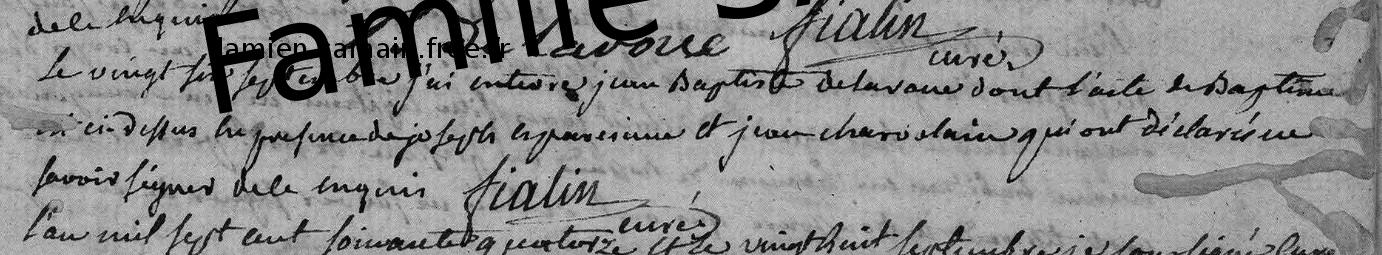 de le enquis
Famille S
damien.ramain.free.fr Delavoue fialin curé
Le vingt six septembre j'ai enterré jean Baptiste Delavoue dont l'acte de Baptême
est ci dessus en presence de joseph et jean charolain qui ont déclaré ne
savoir signer de le enquis fialin curé
l'an mil sept cent soixante quatorze et le vingt huit septembre je soussigné Curé